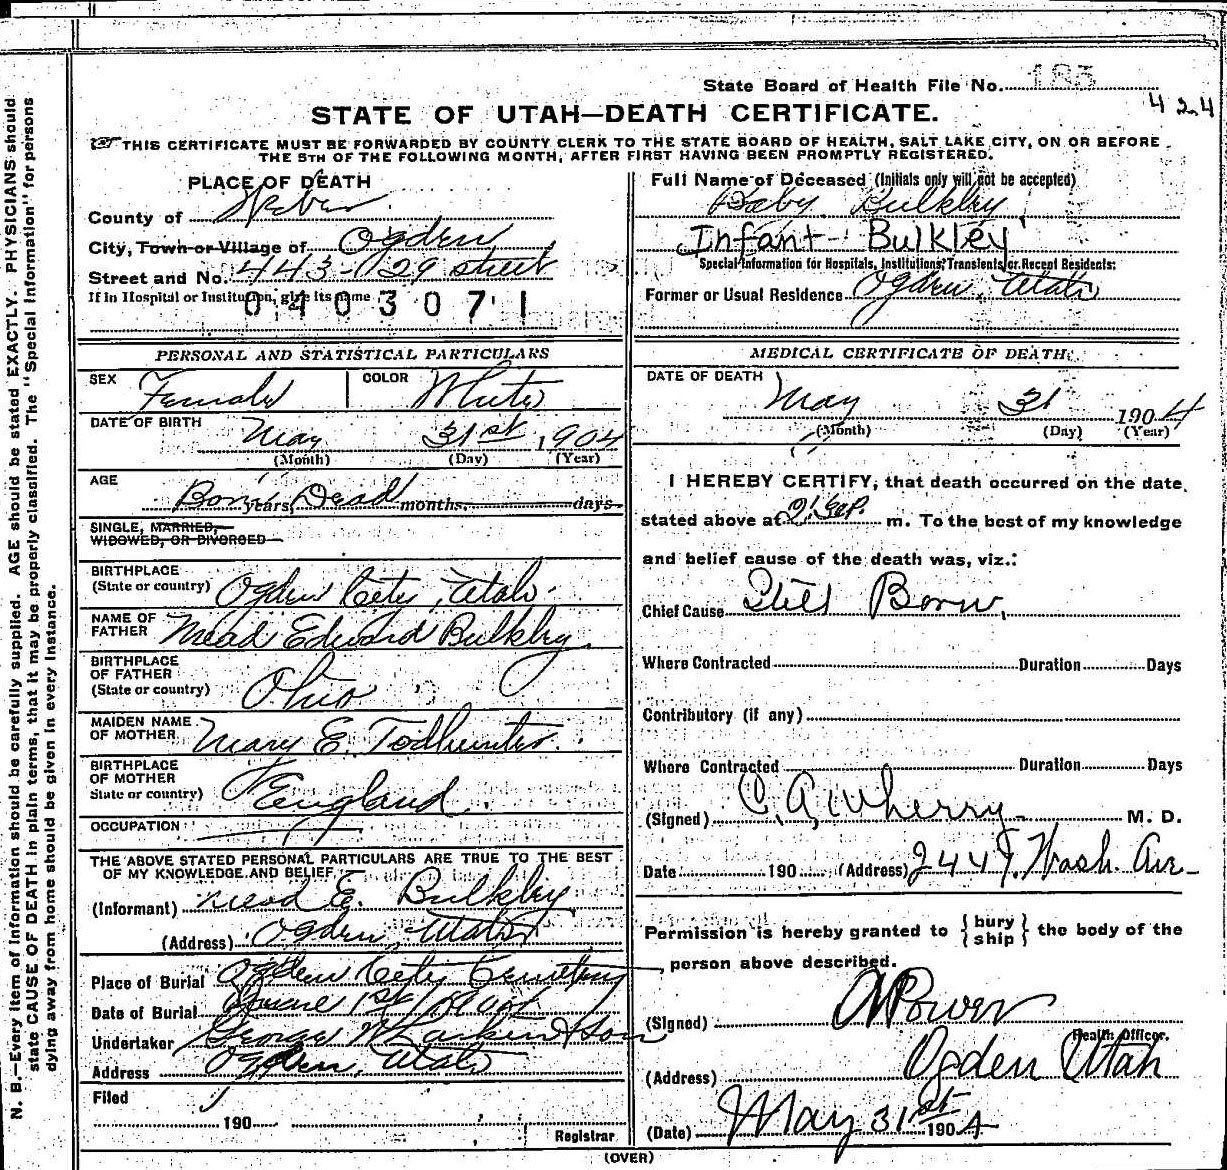 State Board of Health File No. 185
424
STATE OF UTAH—DEATH CERTIFICATE.
THIS CERTIFICATE MUST BE FORWARDED BY COUNTY CLERK TO THE STATE BOARD OF HEALTH, SALT LAKE CITY, ON OR BEFORE
THE 5TH OF THE FOLLOWING MONTH, AFTER FIRST HAVING BEEN PROMPTLY REGISTERED.
PLACE OF DEATH
County of Weber
City, Town or Village of Ogden
Street and No. 443 - 29 street
If in Hospital or Institution, give its name
0403071
Full Name of Deceased (Initials only will not be accepted)
Baby Bulkley
Infant Bulkley
Special Information for Hospitals, Institutions, Transients or Recent Residents:
Former or Usual Residence Ogden, Utah
PERSONAL AND STATISTICAL PARTICULARS
SEX Female COLOR White
DATE OF BIRTH May 31st 1904
(Month) (Day) (Year)
AGE Born years, Dead months, days
SINGLE, MARRIED,
WIDOWED, OR DIVORCED
BIRTHPLACE
(State or country) Ogden City, Utah.
NAME OF
FATHER Mead Edward Bulkley.
BIRTHPLACE
OF FATHER
(State or country) Ohio
MAIDEN NAME
OF MOTHER Mary E. Todhunter.
BIRTHPLACE
OF MOTHER
State or country) England.
OCCUPATION
THE ABOVE STATED PERSONAL PARTICULARS ARE TRUE TO THE BEST
OF MY KNOWLEDGE AND BELIEF.
(Informant) Mead E. Bulkley
(Address) Ogden, Utah
Place of Burial Ogden City Cemetery
Date of Burial June 1st 1904
Undertaker George W Larkin & Son
Address Ogden, Utah
Filed
190
Registrar
MEDICAL CERTIFICATE OF DEATH.
DATE OF DEATH May 31 1904
(Month) (Day) (Year)
I HEREBY CERTIFY, that death occurred on the date
stated above at m. To the best of my knowledge
and belief cause of the death was, viz.:
Chief Cause Still Born,
Where Contracted Duration Days
Contributory (if any)
Where Contracted Duration Days
(Signed) C. A. Wherry M. D.
Date 190 (Address) Wash. Av-
Permission is hereby granted to {bury ship} the body of the
person above described.
(Signed) Power
Health Officer.
(Address) Ogden Utah
(Date) May 31st 1904
(OVER)
N. B.—Every item of Information should be carefully supplied. AGE should be stated EXACTLY. PHYSICIANS should
state CAUSE OF DEATH in plain terms, that it may be properly classified. The "Special Information" for persons
dying away from home should be given in every instance.